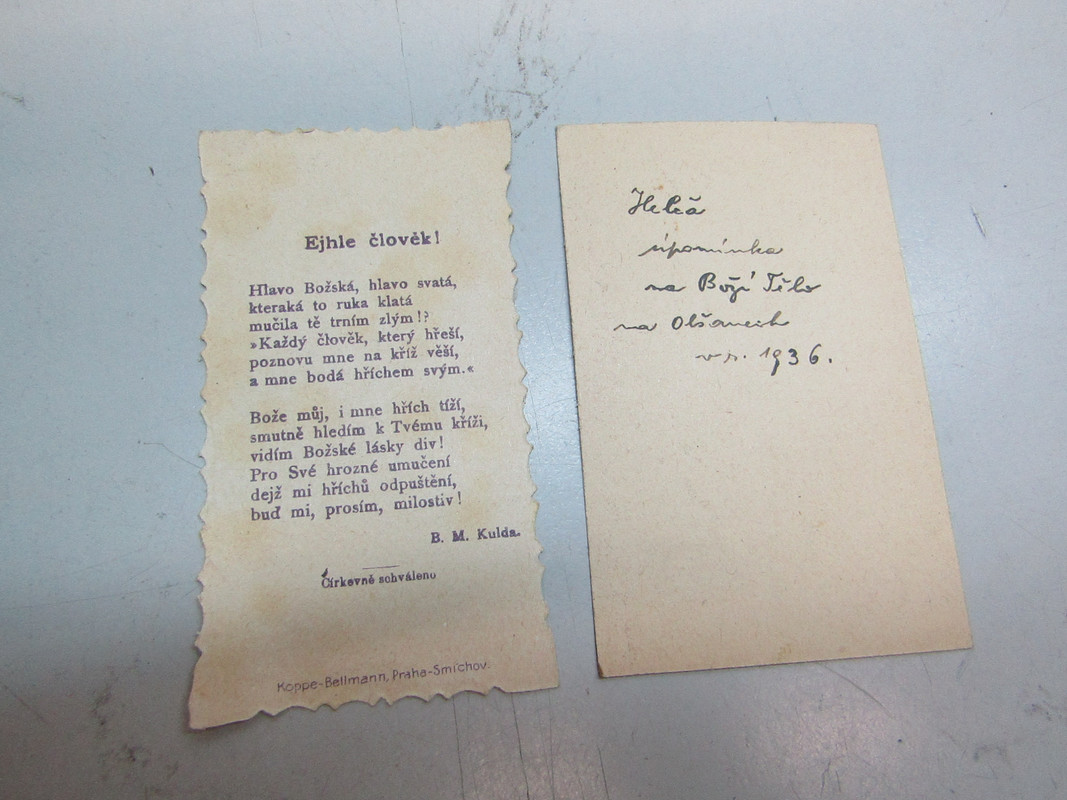 Ejhle člověk!
Hlavo Božská, hlavo svatá,
kteraká to ruka klatá
mučila tě trním zlým!?
»Každý člověk, který hřeší,
poznovu mne na kříž věší,
a mne bodá hříchem svým.«
Bože můj, i mne hřích tíží,
smutně hledím k Tvému kříži,
vidím Božské lásky div!
Pro Své hrozné umučení
dejž mi hříchů odpuštění,
buď mi, prosím, milostiv!
B. M. Kulda.
Církevně schváleno
Koppe-Bellmann, Praha-Smíchov.
na Boží Tělo
na Olšanech
v r. 1936.